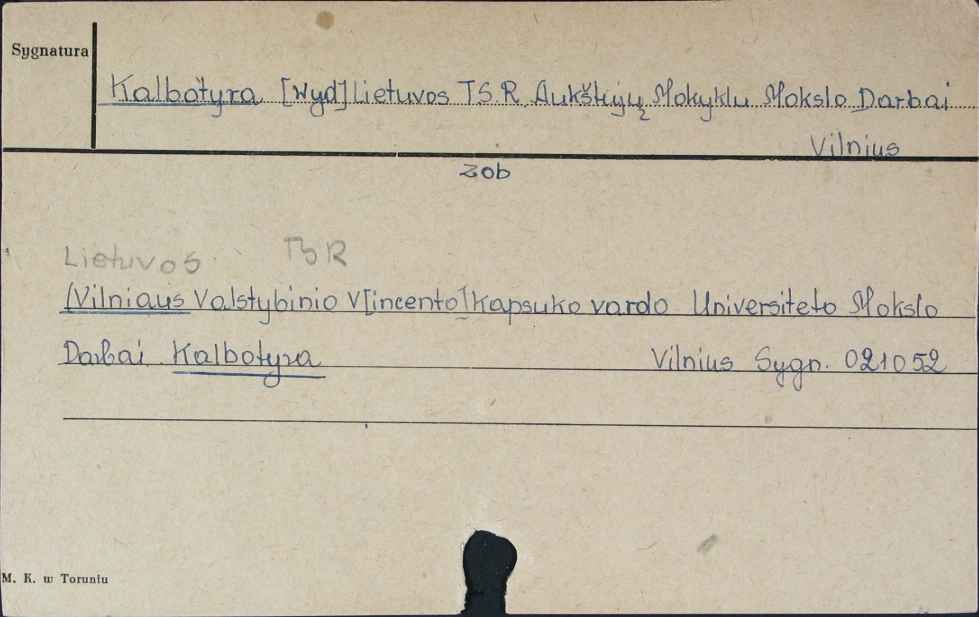 Sygnatura
Kalbotyra [Wyd] Lietuvos TS.R Aukštųjų Mokyklu Mokslo Darbai
Vilnius
zob
Lietuvos TSR
(Vilniaus Valstybinio V[incento] Kapsuko vardo Universiteto Mokslo
Darbai Kalbotyra Vilnius Sygn. 021052
M. K. w Toruniu